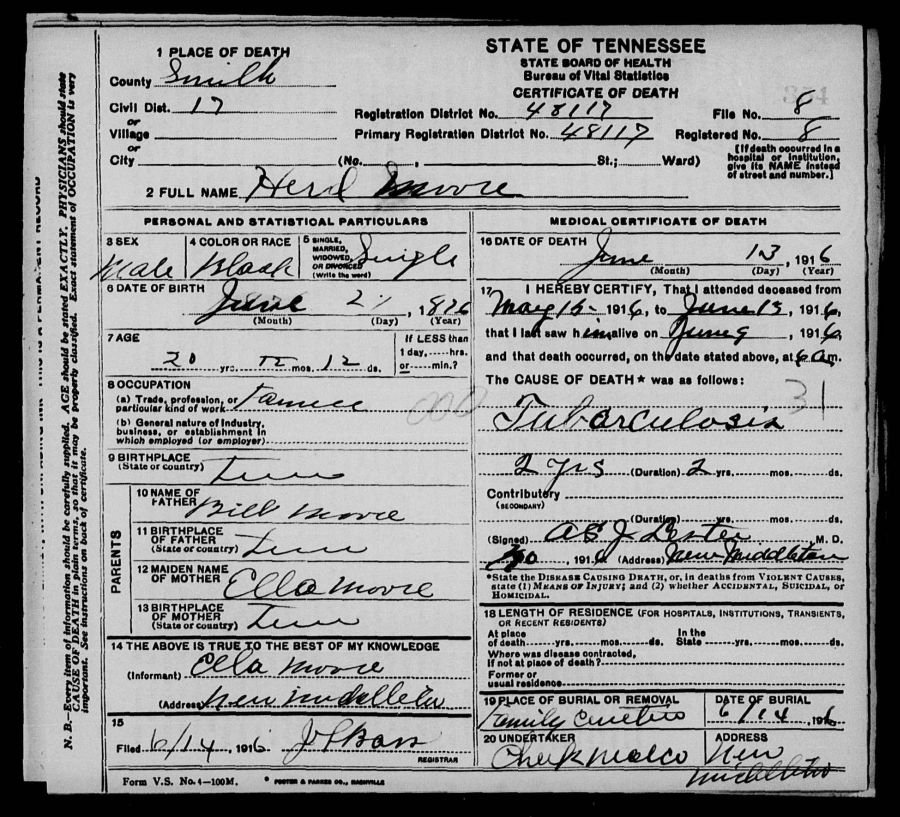 STATE OF TENNESSEE
STATE BOARD OF HEALTH
Bureau of Vital Statistics
CERTIFICATE OF DEATH
1 PLACE OF DEATH
County Smith
Civil Dist. 17
or
Village
or
City (No. , St.; Ward)
Registration District No. 48117 File No. 8
Primary Registration District No. 48117 Registered No. 8
[If death occurred in a
hospital or institution,
give its NAME instead
of street and number.]
2 FULL NAME Moore
PERSONAL AND STATISTICAL PARTICULARS
3 SEX
Male
4 COLOR OR RACE
Black
5 SINGLE,
MARRIED,
WIDOWED,
OR DIVORCED
(Write the word)
Single
6 DATE OF BIRTH
June 2 , 1
(Month) (Day) (Year)
7 AGE
20 yrs. mos. 12 ds.
If LESS than
1 day, hrs.
or min.?
8 OCCUPATION
(a) Trade, profession, or
particular kind of work Farmer
(b) General nature of industry,
business, or establishment in
which employed (or employer)
000
9 BIRTHPLACE
(State or country) Tenn
PARENTS
10 NAME OF
FATHER Bill Moore
11 BIRTHPLACE
OF FATHER
(State or country) Tenn
12 MAIDEN NAME
OF MOTHER Ella Moore
13 BIRTHPLACE
OF MOTHER
(State or country) Tenn
14 THE ABOVE IS TRUE TO THE BEST OF MY KNOWLEDGE
(Informant) Ella Moore
(Address) New Middleton
15
Filed 6/14, 1916
REGISTRAR
MEDICAL CERTIFICATE OF DEATH
16 DATE OF DEATH
June 13, 1916
(Month) (Day) (Year)
17 I HEREBY CERTIFY, That I attended deceased from
May 1916, to June 13, 1916,
that I last saw him alive on June 9, 1916,
and that death occurred, on the date stated above, at 6 a m.
The CAUSE OF DEATH* was as follows:
31
Tubarculosis
2 yrs (Duration) 2 yrs. mos. ds.
Contributory
(SECONDARY)
(Duration) yrs. mos. ds.
(Signed) Lester M. D.
, 1916 (Address) New Middleton
*State the DISEASE CAUSING DEATH, or, in deaths from VIOLENT CAUSES,
state (1) MEANS OF INJURY; and (2) whether ACCIDENTAL, SUICIDAL, or
HOMICIDAL.
18 LENGTH OF RESIDENCE (FOR HOSPITALS, INSTITUTIONS, TRANSIENTS,
OR RECENT RESIDENTS)
At place
of death yrs. mos. ds.
In the
State yrs. mos. ds.
Where was disease contracted,
if not at place of death?
Former or
usual residence
19 PLACE OF BURIAL OR REMOVAL
Family
DATE OF BURIAL
6/14 1916
20 UNDERTAKER
ADDRESS
New
Middleton
Form V.S. No. 4—100M.
* FOSTER & PARKES CO., NASHVILLE
N. B.—Every item of information should be carefully supplied. AGE should be stated EXACTLY. PHYSICIANS should state
CAUSE OF DEATH in plain terms, so that it may be properly classified. Exact statement of OCCUPATION is very
important. See instructions on back of certificate.